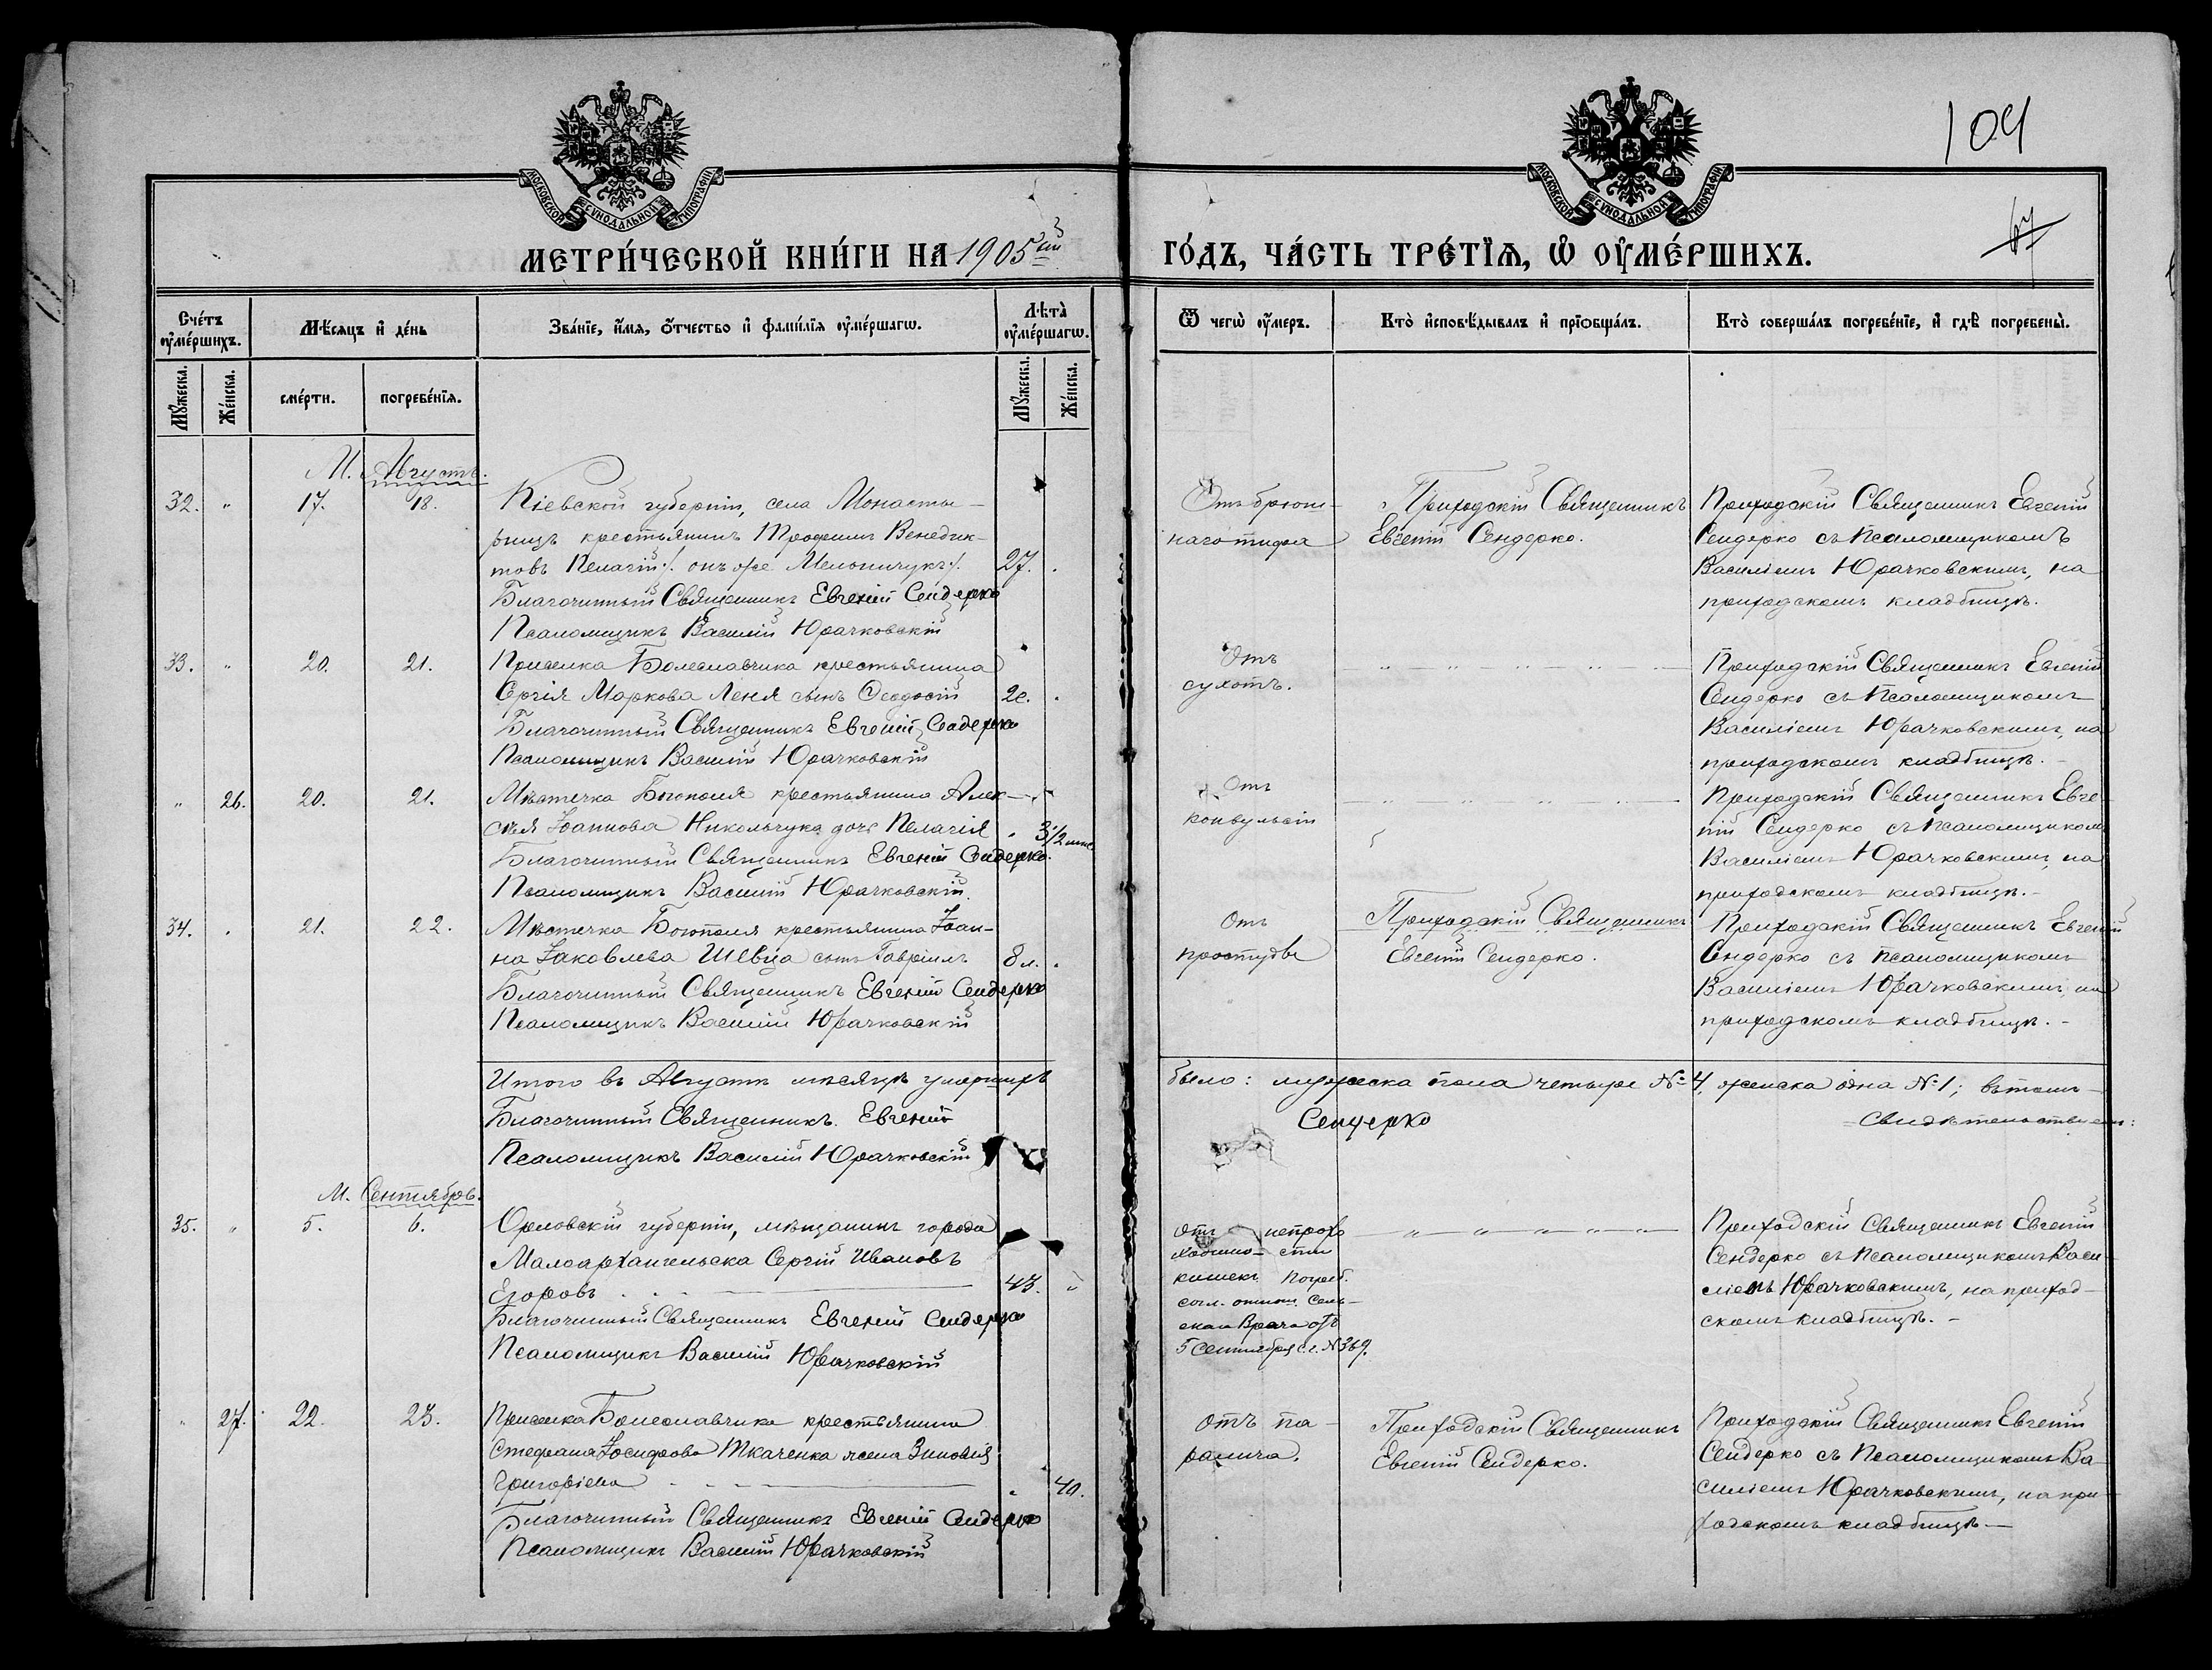 104
67
МОСКОВСКОЙ СѴНОДАЛЬНОЙ ТИПОГРАФІИ
МОСКОВСКОЙ СѴНОДАЛЬНОЙ ТИПОГРАФІИ
МЕТРИ́ЧЕСКОЙ КНИ́ГИ НА 1905ый ГО́ДЪ, ЧА́СТЬ ТРЕ́ТІѦ, Ѡ ОУ҆МЕ́РШИХЪ.
Сче́тъ оу҆ме́ршихъ.
Мѣ́сяцъ и҆ де́нь
Зва́нїе, и҆́мя, ѻ҆́тчество и҆ фами́лїя оу҆ме́ршагѡ.
Лѣ́та̀ оу҆ме́ршагѡ.
Ѿ чегѡ̀ оу҆́меръ.
Кто̀ и҆сповѣ́дывалъ и҆ прїѻбща́лъ.
Кто̀ соверша́лъ погребе́нїе, и҆ гдѣ̀ погребены̀.
Мꙋ́жеска. Же́нска. сме́рти. погребе́нїя. Мꙋ́жеска. Же́нска.
М. Августъ.
32. " 17. 18. Кіевской губерніи, села Монасты-
рищъ крестьянинъ Трофимъ Венедик-
товъ Пелагій /. онъ же Мельничукъ /. 27.
Благочинный Священникъ Евгеній Сендерко
Псаломщикъ Василій Юрачковскій
Отъ брюш-
наго тифа
Приходскій Священникъ
Евгеній Сендерко.
Приходскій Священникъ Евгеній
Сендерко съ Псаломщикомъ
Василіемъ Юрачковскимъ, на
приходскомъ кладбищѣ.
33. " 20. 21. Приселка Болеславчика крестьянина
Сергія Маркова Леня сынъ Ѳеодосій
Благочинный Священникъ Евгеній Сендерко
Псаломщикъ Василій Юрачковскій
Отъ
сухотъ.
Приходскій Священникъ Евгеній
Сендерко съ Псаломщикомъ
Василіемъ Юрачковскимъ, на
приходскомъ кладбищѣ.
" 26. 20. 21. Мѣстечка Богополя крестьянина Алек-
сѣя Іоаннова Никольчука дочь Пелагія
Благочинный Священникъ Евгеній Сендерко.
Псаломщикъ Василій Юрачковскій
Отъ
конвульсій
Приходскій Священникъ Евге-
ній Сендерко съ Псаломщикомъ
Василіемъ Юрачковскимъ, на
приходскомъ кладбищѣ.
34. . 21. 22. Мѣстечка Богополя крестьянина Іоан-
на Іаковлева Шевца сынъ Гавріилъ 8 л.
Благочинный Священникъ Евгеній Сендерко
Псаломщикъ Василій Юрачковскій
Отъ
простуды
Приходскій Священникъ
Евгеній Сендерко.
Приходскій Священникъ Евгеній
Сендерко съ Псаломщикомъ
Василіемъ Юрачковскимъ, на
приходскомъ кладбищѣ.
Итого въ Августѣ мѣсяцѣ умершихъ было: мужеска пола четыре № 4, женска одна № 1; въ томъ
свидѣтельствуемъ:
Благочинный Священникъ Евгеній Сендерко
Псаломщикъ Василій Юрачковскій
М. Сентябрь.
35. " 5. 6. Орловской губерніи, мѣщанинъ города
Малоархангельска Сергій Ивановъ
Егоровъ 43.
Благочинный Священникъ Евгеній Сендерко
Псаломщикъ Василій Юрачковскій
Отъ непрохо
димо-сти
кишекъ Погреб.
согл. отнош. Сель-
скаго Врача отъ
5 Сентября с.г. № 369.
Приходскій Священникъ Евгеній
Сендерко съ Псаломщикомъ Васи-
ліемъ Юрачковскимъ, на приход-
скомъ кладбищѣ.
" 27. 22. 23. Приселка Болеславчика крестьянина
Стефана Іосифова Ткаченка жена Зиновія
Григоріева 40.
Благочинный Священникъ Евгеній Сендерко
Псаломщикъ Василій Юрачковскій
отъ па-
ралича.
Приходскій Священникъ
Евгеній Сендерко.
Приходскій Священникъ Евгеній
Сендерко съ Псаломщикомъ Ва-
силіемъ Юрачковскимъ, на при-
ходскомъ кладбищѣ.